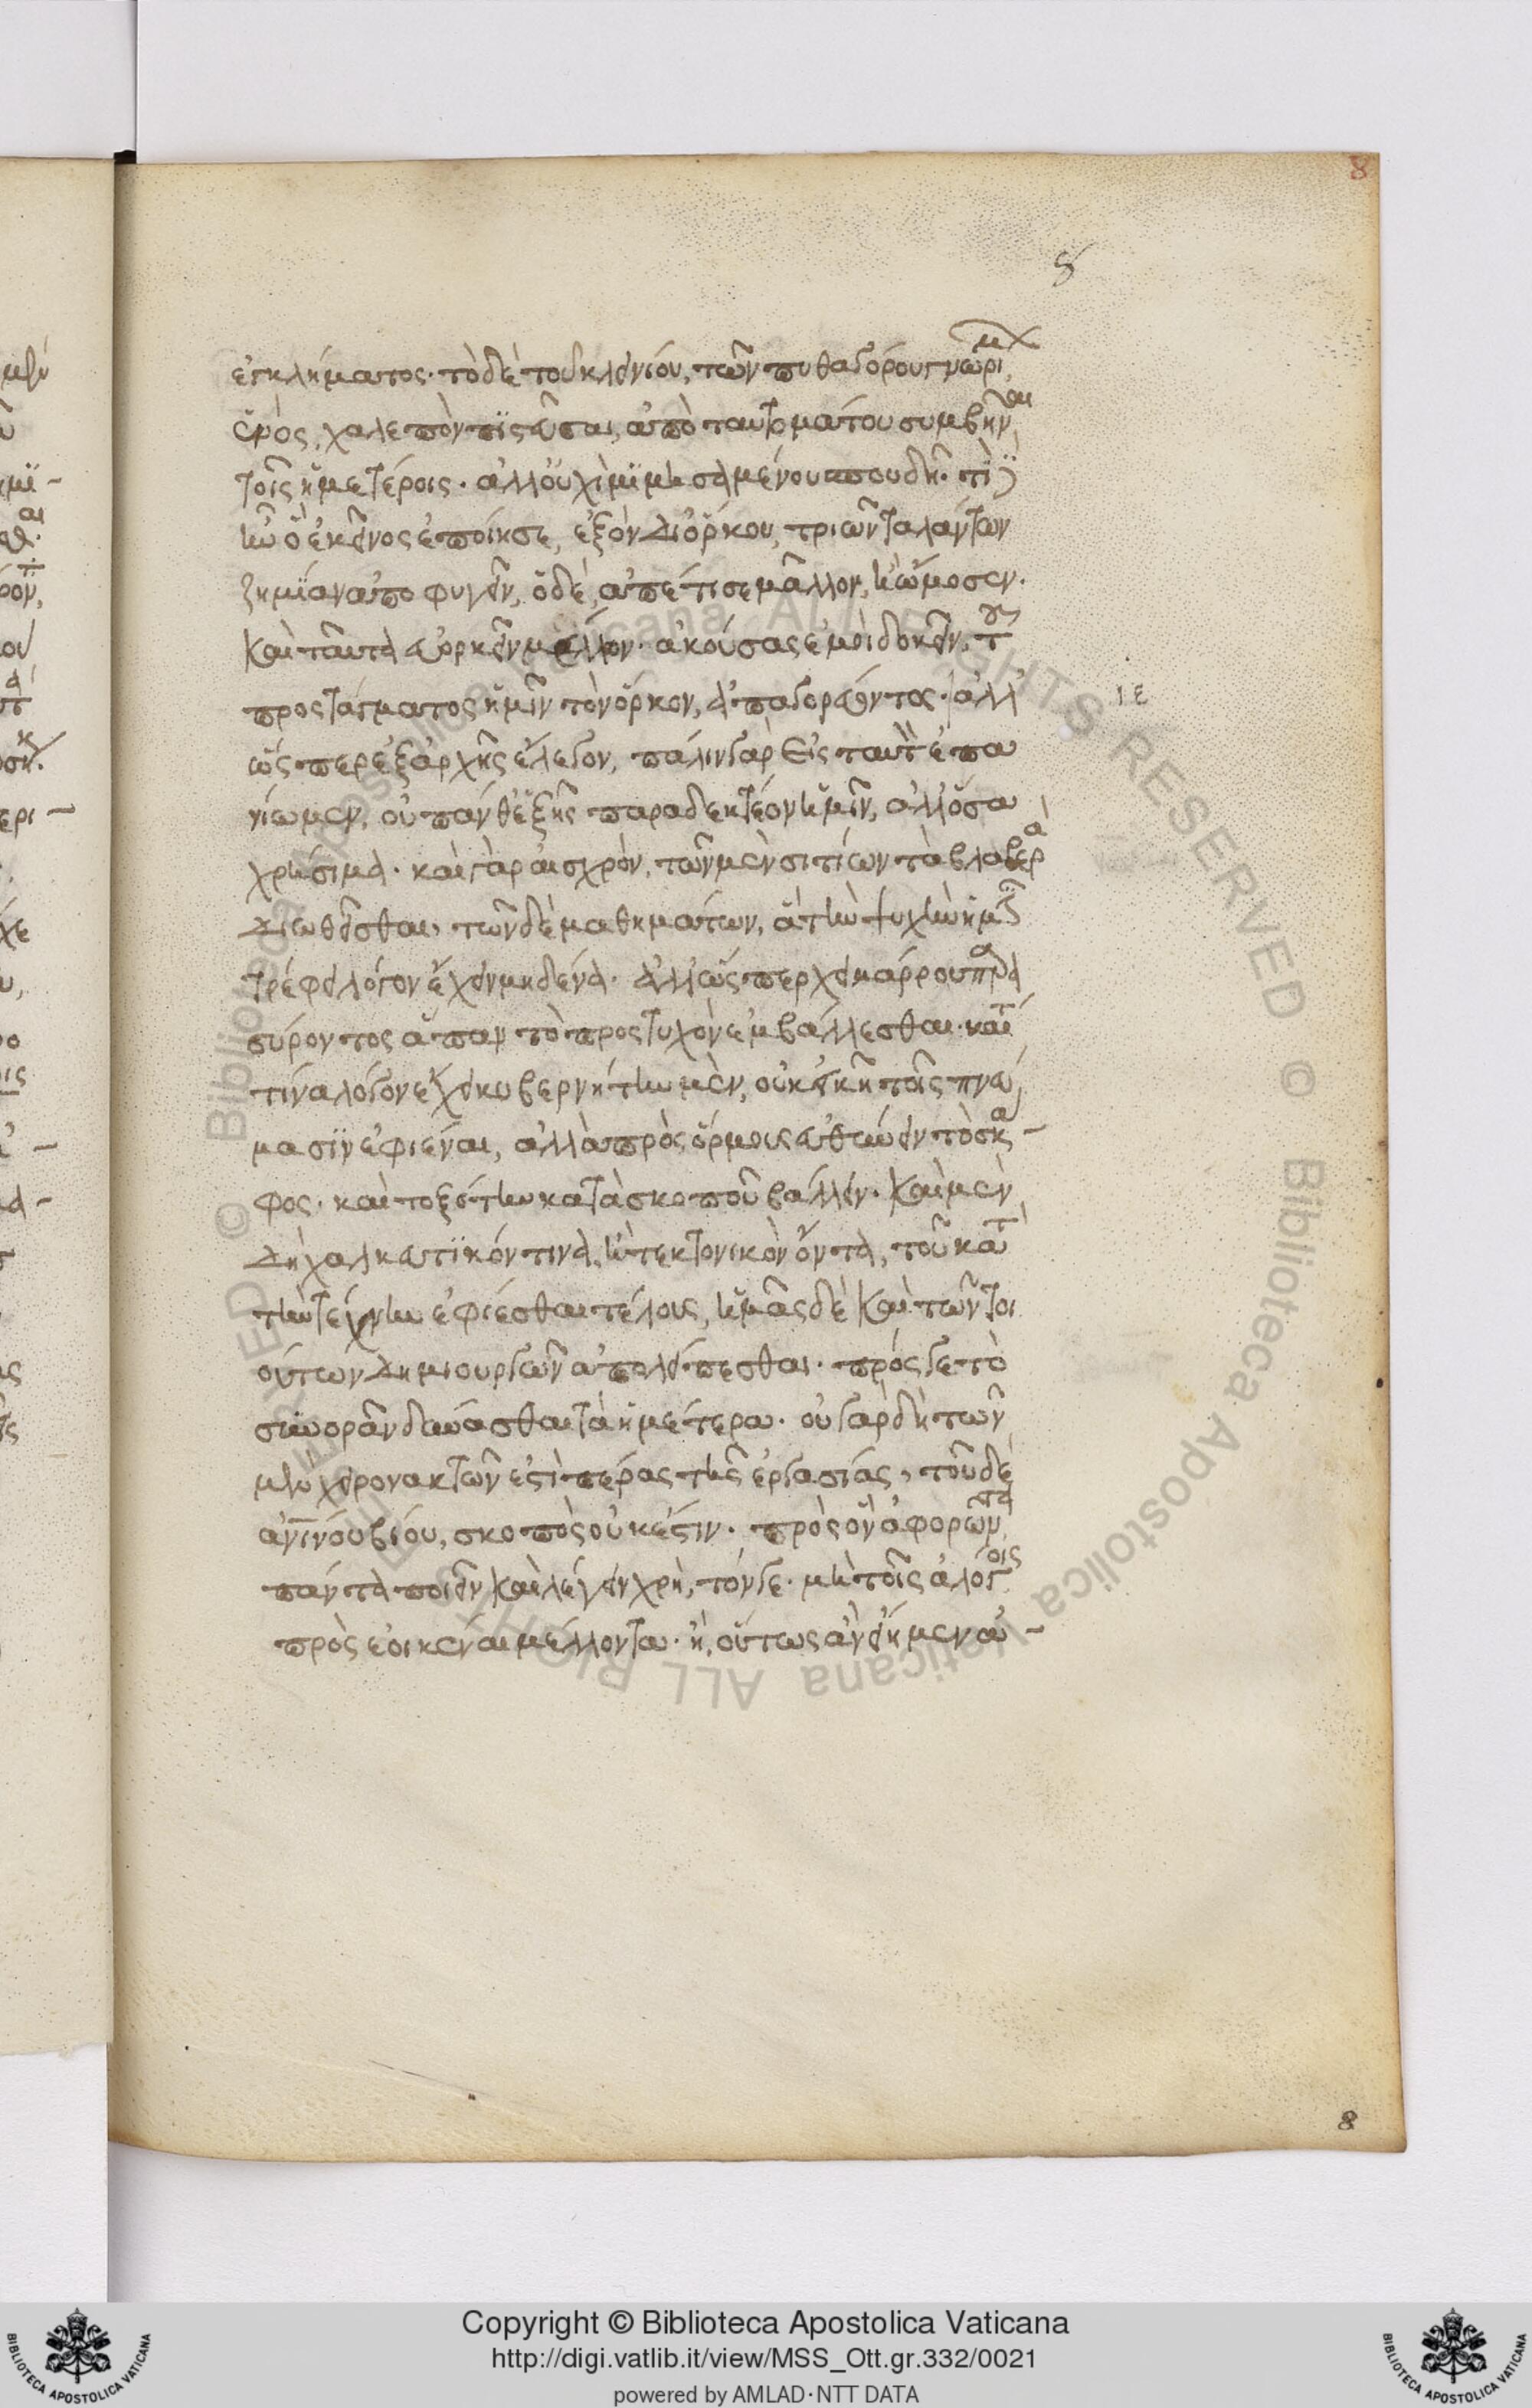 8
8
ἐγκλήματος· τὸ δὲ τοῦ κλεινίου, τῶν πυθαγόρου γνωρίμων
ἑνός, χαλεπὸν πιστεῦσαι, ἀπὸ ταυτομάτου συμβῆναι
τοῖς ἡμετέροις· ἀλλ' οὐχὶ μιμησαμένου σπουδῆ· τί
ἦν ὃ ἐκεῖνος ἐποίησε, ἐξὸν δι' ὅρκου, τριῶν ταλάντων
ζημίαν ἀποφυγεῖν, ὁ δὲ, ἀπέτισε μᾶλλον, ἢ ὤμοσεν·
καὶ ταῦτα εὐορκεῖν μέλλον· ἀκούσας ἐμοὶ δοκεῖν, τοῦ
προστάγματος ἡμῖν τὸν ὅρκον, ἀπαγορεύοντος· ἀλλ'
ὥσπερ ἐξ ἀρχῆς ἔλεγον, πάλιν γὰρ εἰς ταυτὸ ἐπα
νίωμεν, οὐ πάνθ' ἑξῆς παραδεκτέον ἡμῖν, ἀλλ' ὅσα
χρήσιμα· καὶ γὰρ αἰσχρόν, τῶν μὲν σιτίων τὰ βλαβερὰ
διωθεῖσθαι, τῶν δὲ μαθημάτων, ἃ τὴν ψυχὴν ἡμῶν
τρέφει λόγον ἔχειν μηδένα· ἀλλ' ὥσπερ χειμάρρου παρα
σύροντος ἅπαν τὸ προστυχὸν ἐμβάλλεσθαι· καίτοι
τίνα λόγον ἔχει κυβερνήτην μὲν, οὐκ εἰκῆ τοῖς πνεύ
μασϊν ἐφιέναι, ἀλλὰ πρὸς ὅρμους εὐθύνειν τὸ σκά-
φος· καὶ τοξότην κατὰ σκοποῦ βάλλειν· καὶ μὲν
δὴ χαλκευτικόν τινα, ἢ τεκτονικὸν ὄντα, τοῦ κατὰ
τὴν τέχνην ἐφίεσθαι τέλους, ἡμᾶς δὲ καὶ τῶν τοι
ούτων δημιουργῶν ἀπολείπεσθαι· πρός γε τὸ
συνορᾶν δύνασθαι τὰ ἡμέτερα· οὐ γὰρ δὴ τῶν
μὲν χειρωνακτῶν ἐστὶ πέρας τῆς ἐργασίας, τοῦ δὲ
ἀνίνου βίου, σκοπὸς οὐκ ἔστιν· πρὸς ὃν ἀφορῶντα
πάντα ποιεῖν καὶ λέγειν χρή, τόν γε· μὴ τοῖς ἀλόγοις
προσεοικέναι μέλλοντα· ἢ, οὕτως ἂν εἴημεν ἀ-
ΙΕ
8
© Biblioteca Apostolica Vaticana ALL RIGHTS RESERVED
Copyright © Biblioteca Apostolica Vaticana
http://digi.vatlib.it/view/MSS_Ott.gr.332/0021
powered by AMLAD·NTT DATA
BIBLIOTECA APOSTOLICA VATICANA
BIBLIOTECA APOSTOLICA VATICANA